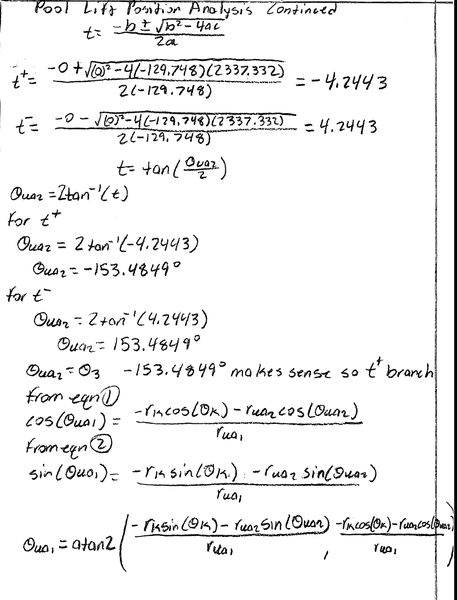 Pool Lift Position Analysis Continued
t = (-b ± √(b² - 4ac)) / 2a
t⁺ = (-0 + √((0)² - 4(-129.748)(2337.332))) / 2(-129.748) = -4.2443
t⁻ = (-0 - √((0)² - 4(-129.748)(2337.332))) / 2(-129.748) = 4.2443
t = tan(θua2/2)
θua2 = 2tan⁻¹(t)
for t⁺
θua2 = 2tan⁻¹(-4.2443)
θua2 = -153.4849°
for t⁻
θua2 = 2tan⁻¹(4.2443)
θua2 = 153.4849°
θua2 = θ3 -153.4849° makes sense so t⁺ branch
from eqn ①
cos(θua1) = (-rk cos(θk) - rua2 cos(θua2)) / rua1
from eqn ②
sin(θua1) = (-rk sin(θk) - rua2 sin(θua2)) / rua1
θua1 = atan2((-rk sin(θk) - rua2 sin(θua2)) / rua1, (-rk cos(θk) - rua2 cos(θua2)) / rua1)